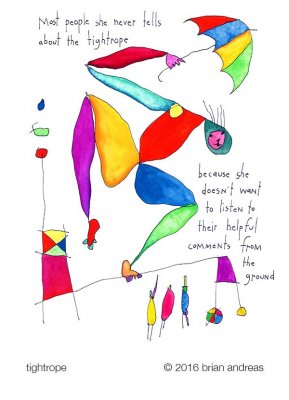 Most people she never tells
about the tightrope
because she
doesn't want
to listen to
their helpful
comments from
the
ground
tightrope
© 2016 brian andreas